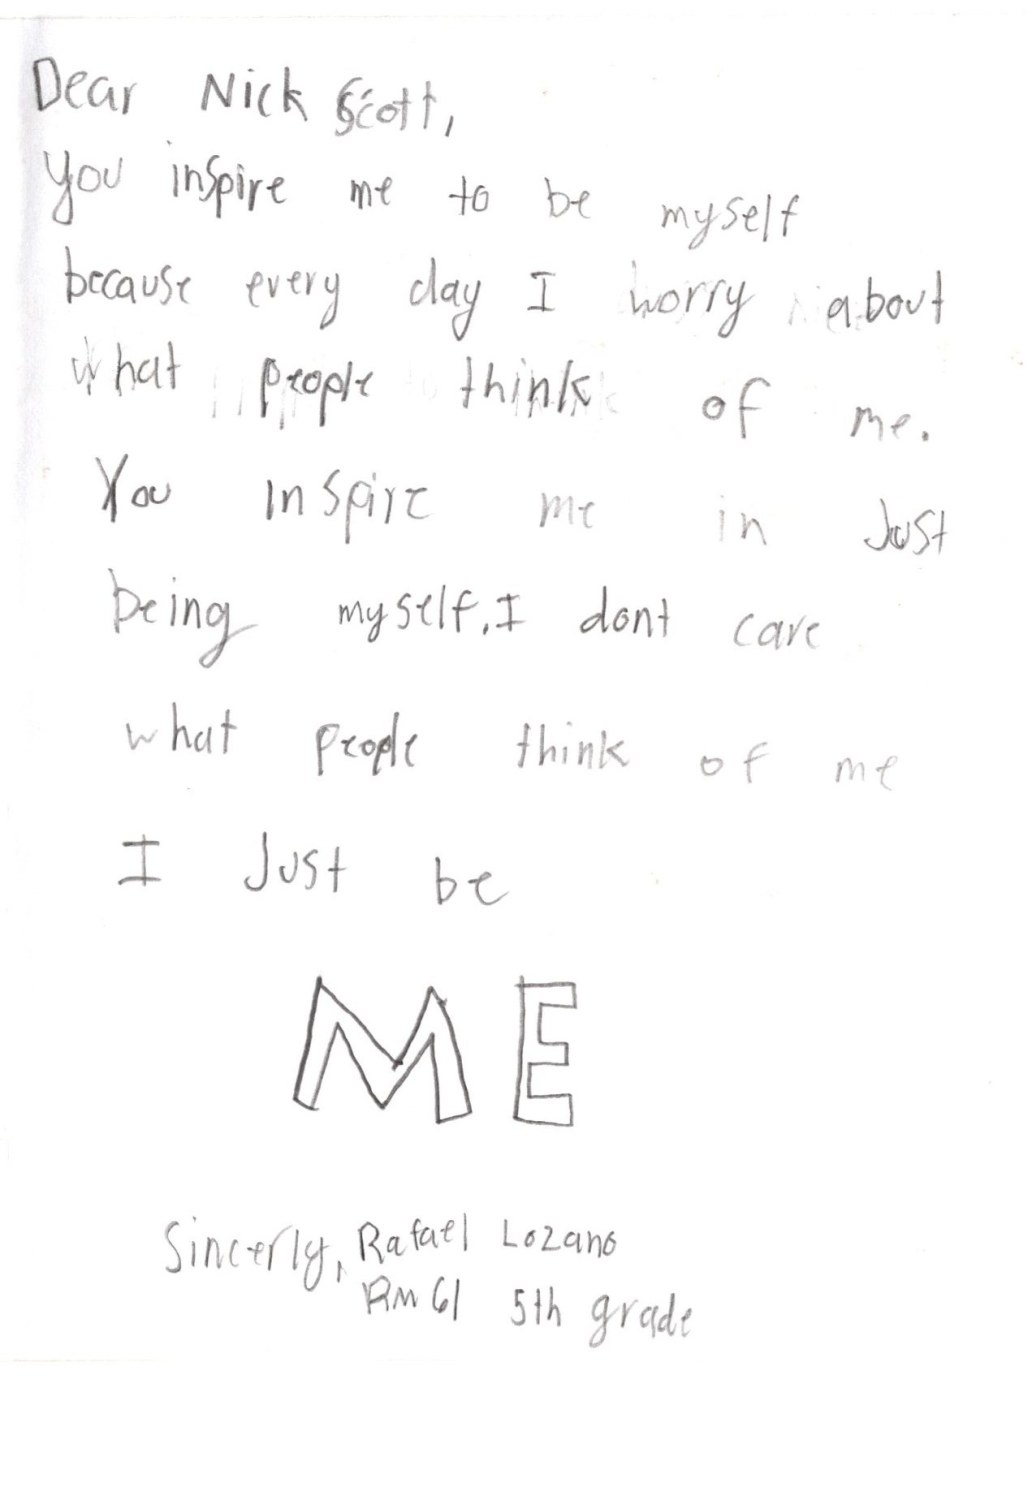 Dear Nick Scott,
You inspire me to be myself
because every day I worry about
what people think of me.
You inspire me in Just
being myself. I dont care
what people think of me
I Just be
ME
Sincerly, Rafael Lozano
RM 61 5th grade